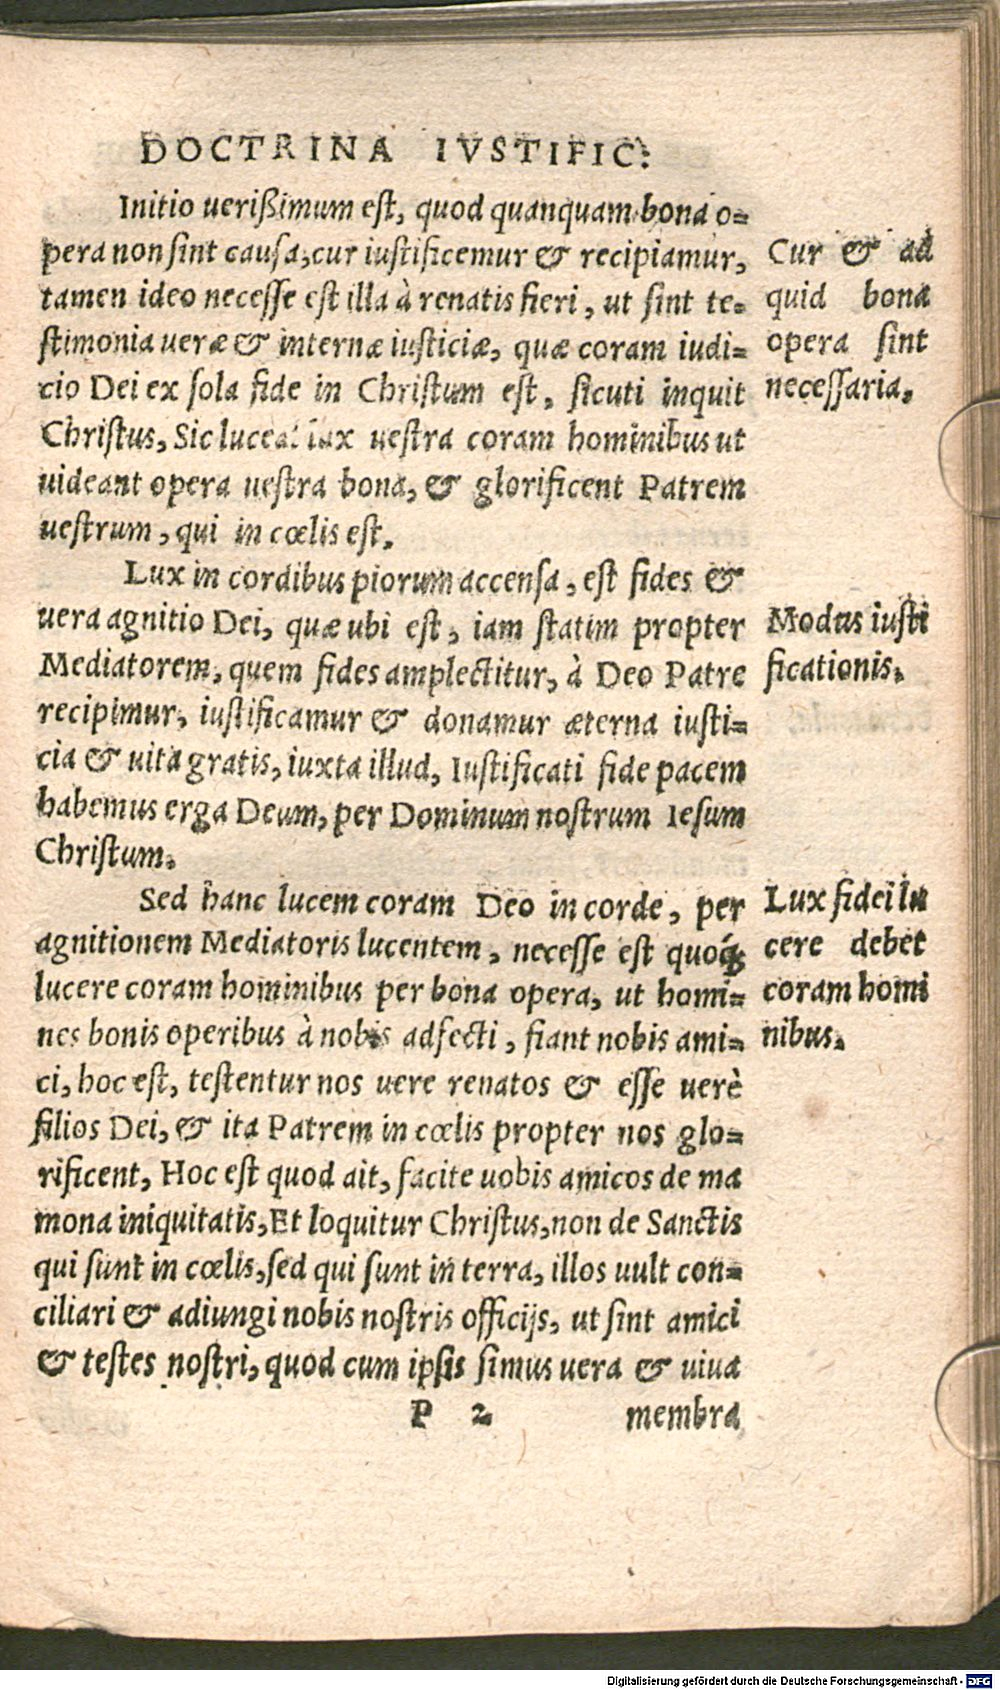 DOCTRINA IVSTIFIC:
Initio uerißimum est, quod quanquam bona o=
pera non sint causa, cur iustificemur & recipiamur,
tamen ideo necesse est illa à renatis fieri, ut sint te=
stimonia ueræ & internæ iusticiæ, quæ coram iudi=
cio Dei ex sola fide in Christum est, sicuti inquit
Christus, Sic luceat lux uestra coram hominibus ut
uideant opera uestra bona, & glorificent Patrem
uestrum, qui in cœlis est.
Cur & ad
quid bona
opera sint
necessaria.
Lux in cordibus piorum accensa, est fides &
uera agnitio Dei, quæ ubi est, iam statim propter
Mediatorem, quem fides amplectitur, à Deo Patre
recipimur, iustificamur & donamur æterna iusti=
cia & uita gratis, iuxta illud, Iustificati fide pacem
habemus erga Deum, per Dominum nostrum Iesum
Christum.
Modus iusti
ficationis.
Sed hanc lucem coram Deo in corde, per
agnitionem Mediatoris lucentem, necesse est quoq́;
lucere coram hominibus per bona opera, ut homi=
nes bonis operibus à nobis adfecti, fiant nobis ami=
ci, hoc est, testentur nos uere renatos & esse uerè
filios Dei, & ita Patrem in cœlis propter nos glo=
rificent, Hoc est quod ait, facite uobis amicos de ma
mona iniquitatis, Et loquitur Christus, non de Sanctis
qui sunt in cœlis, sed qui sunt in terra, illos uult con=
ciliari & adiungi nobis nostris officijs, ut sint amici
& testes nostri, quod cum ipsis simus uera & uiua
Lux fidei lu
cere debet
coram homi
nibus.
P 2 membra
Digitalisierung gefördert durch die Deutsche Forschungsgemeinschaft - DFG